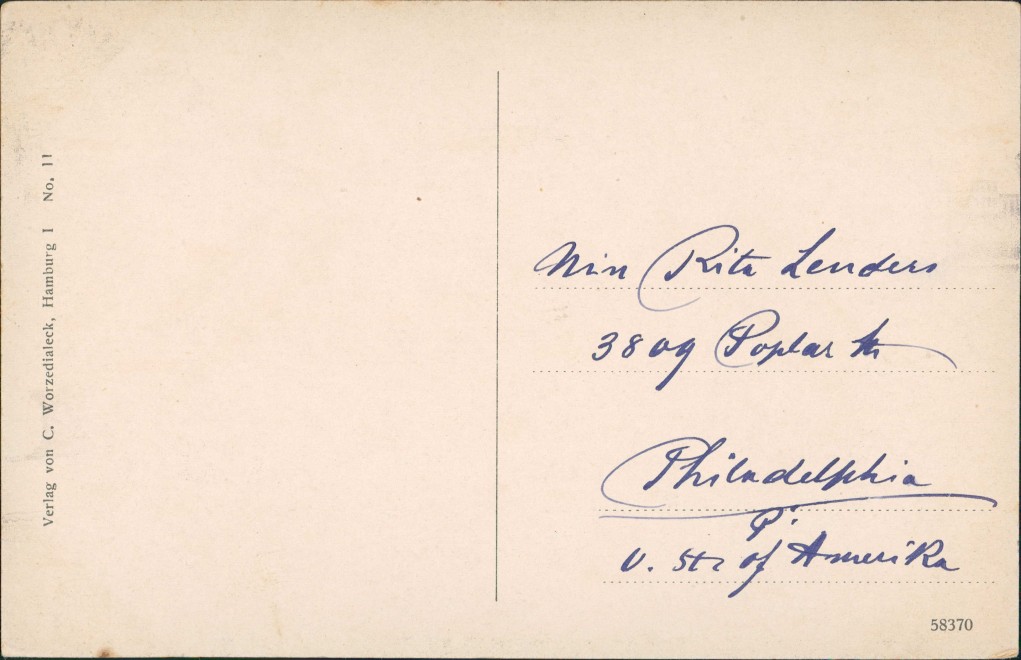 Verlag von C. Worzedialeck, Hamburg 1 No. 11
Miss Rita Lenders
3809 Poplar Str
Philadelphia
P.
U. Sts of Amerika
58370